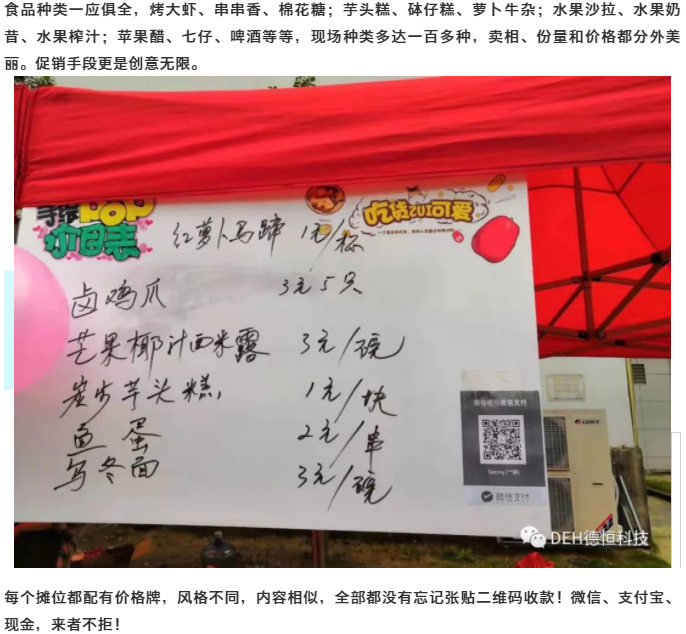 食品种类一应俱全，烤大虾、串串香、棉花糖；芋头糕、砵仔糕、萝卜牛杂；水果沙拉、水果奶
昔、水果榨汁；苹果醋、七仔、啤酒等等，现场种类多达一百多种，卖相、份量和价格都分外美
丽。促销手段更是创意无限。
手绘POP
吃货ZUI可爱
红萝卜马蹄 1元/杯
卤鸡爪 3元5只
芒果椰汁西米露 3元/碗
炭步芋头糕 1元/块
鱼蛋 2元/串
乌冬面 3元/碗
推荐使用微信支付
GREE
Tammy(**颖)
微信支付
DEH德恒科技
每个摊位都配有价格牌，风格不同，内容相似，全部都没有忘记张贴二维码收款！微信、支付宝、
现金，来者不拒！